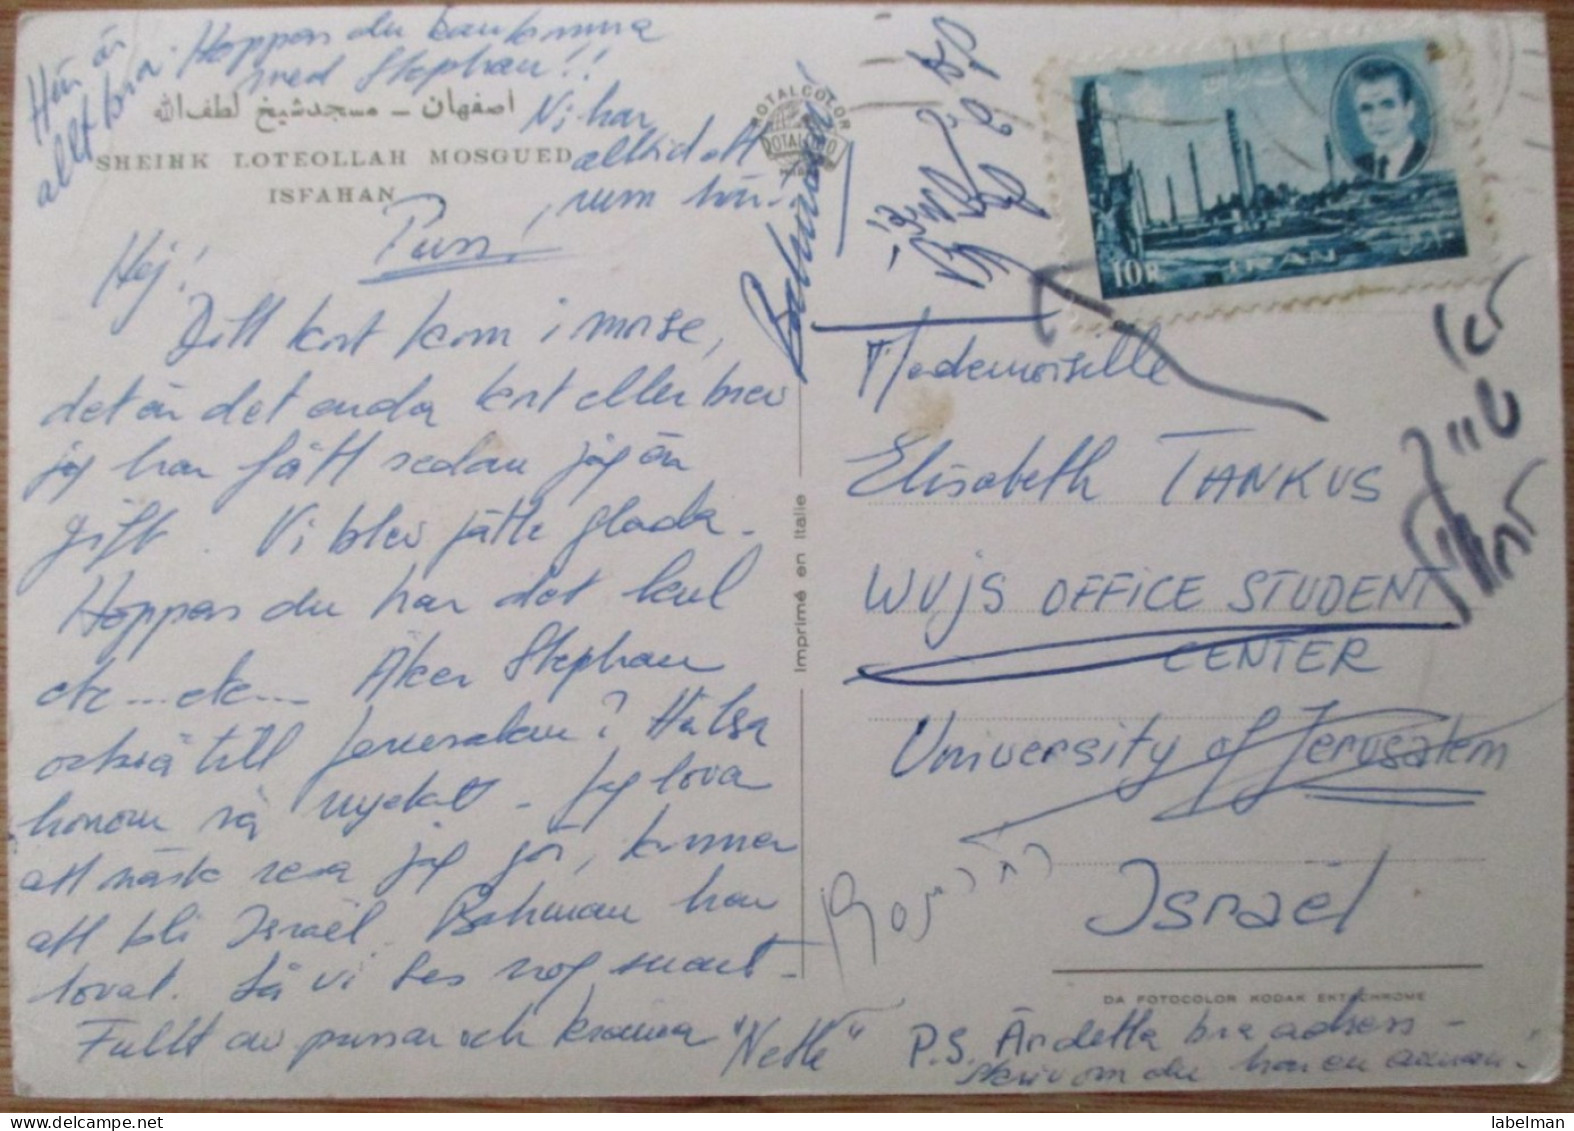 Här är
allt bra. Hoppas du kan komma
med Stephan!!
Vi har
alltid ett
rum här!
اصفهان - مسجد شیخ لطف الله
SHEIHK LOTEOLLAH MOSGUED
ISFAHAN
Puss!
Hej!
Ditt kort kom i morse,
det är det enda kort eller brev
jag har fått sedan jag är
gift. Vi blev jätte glada.
Hoppas du har det kul
etc... etc... Åker Stephan
också till Jerusalem? Hälsa
honom så mycket. Jag lovar
att nästa resa jag gör, kommer
att bli Israël. Bahman har
lovat. Så vi ses nog snart.
Fullt av pussar och kramar "Nette"
Bahman
ROTALCOLOR
ROTALFOTO
Imprimé en Italie
10R
IRAN
Mademoiselle
Elisabeth TANKUS
WUJS OFFICE STUDENT
CENTER
University of Jerusalem
Israël
DA FOTOCOLOR KODAK EKTACHROME
P.S. Är detta bra adress -
skriv om du har en annan!